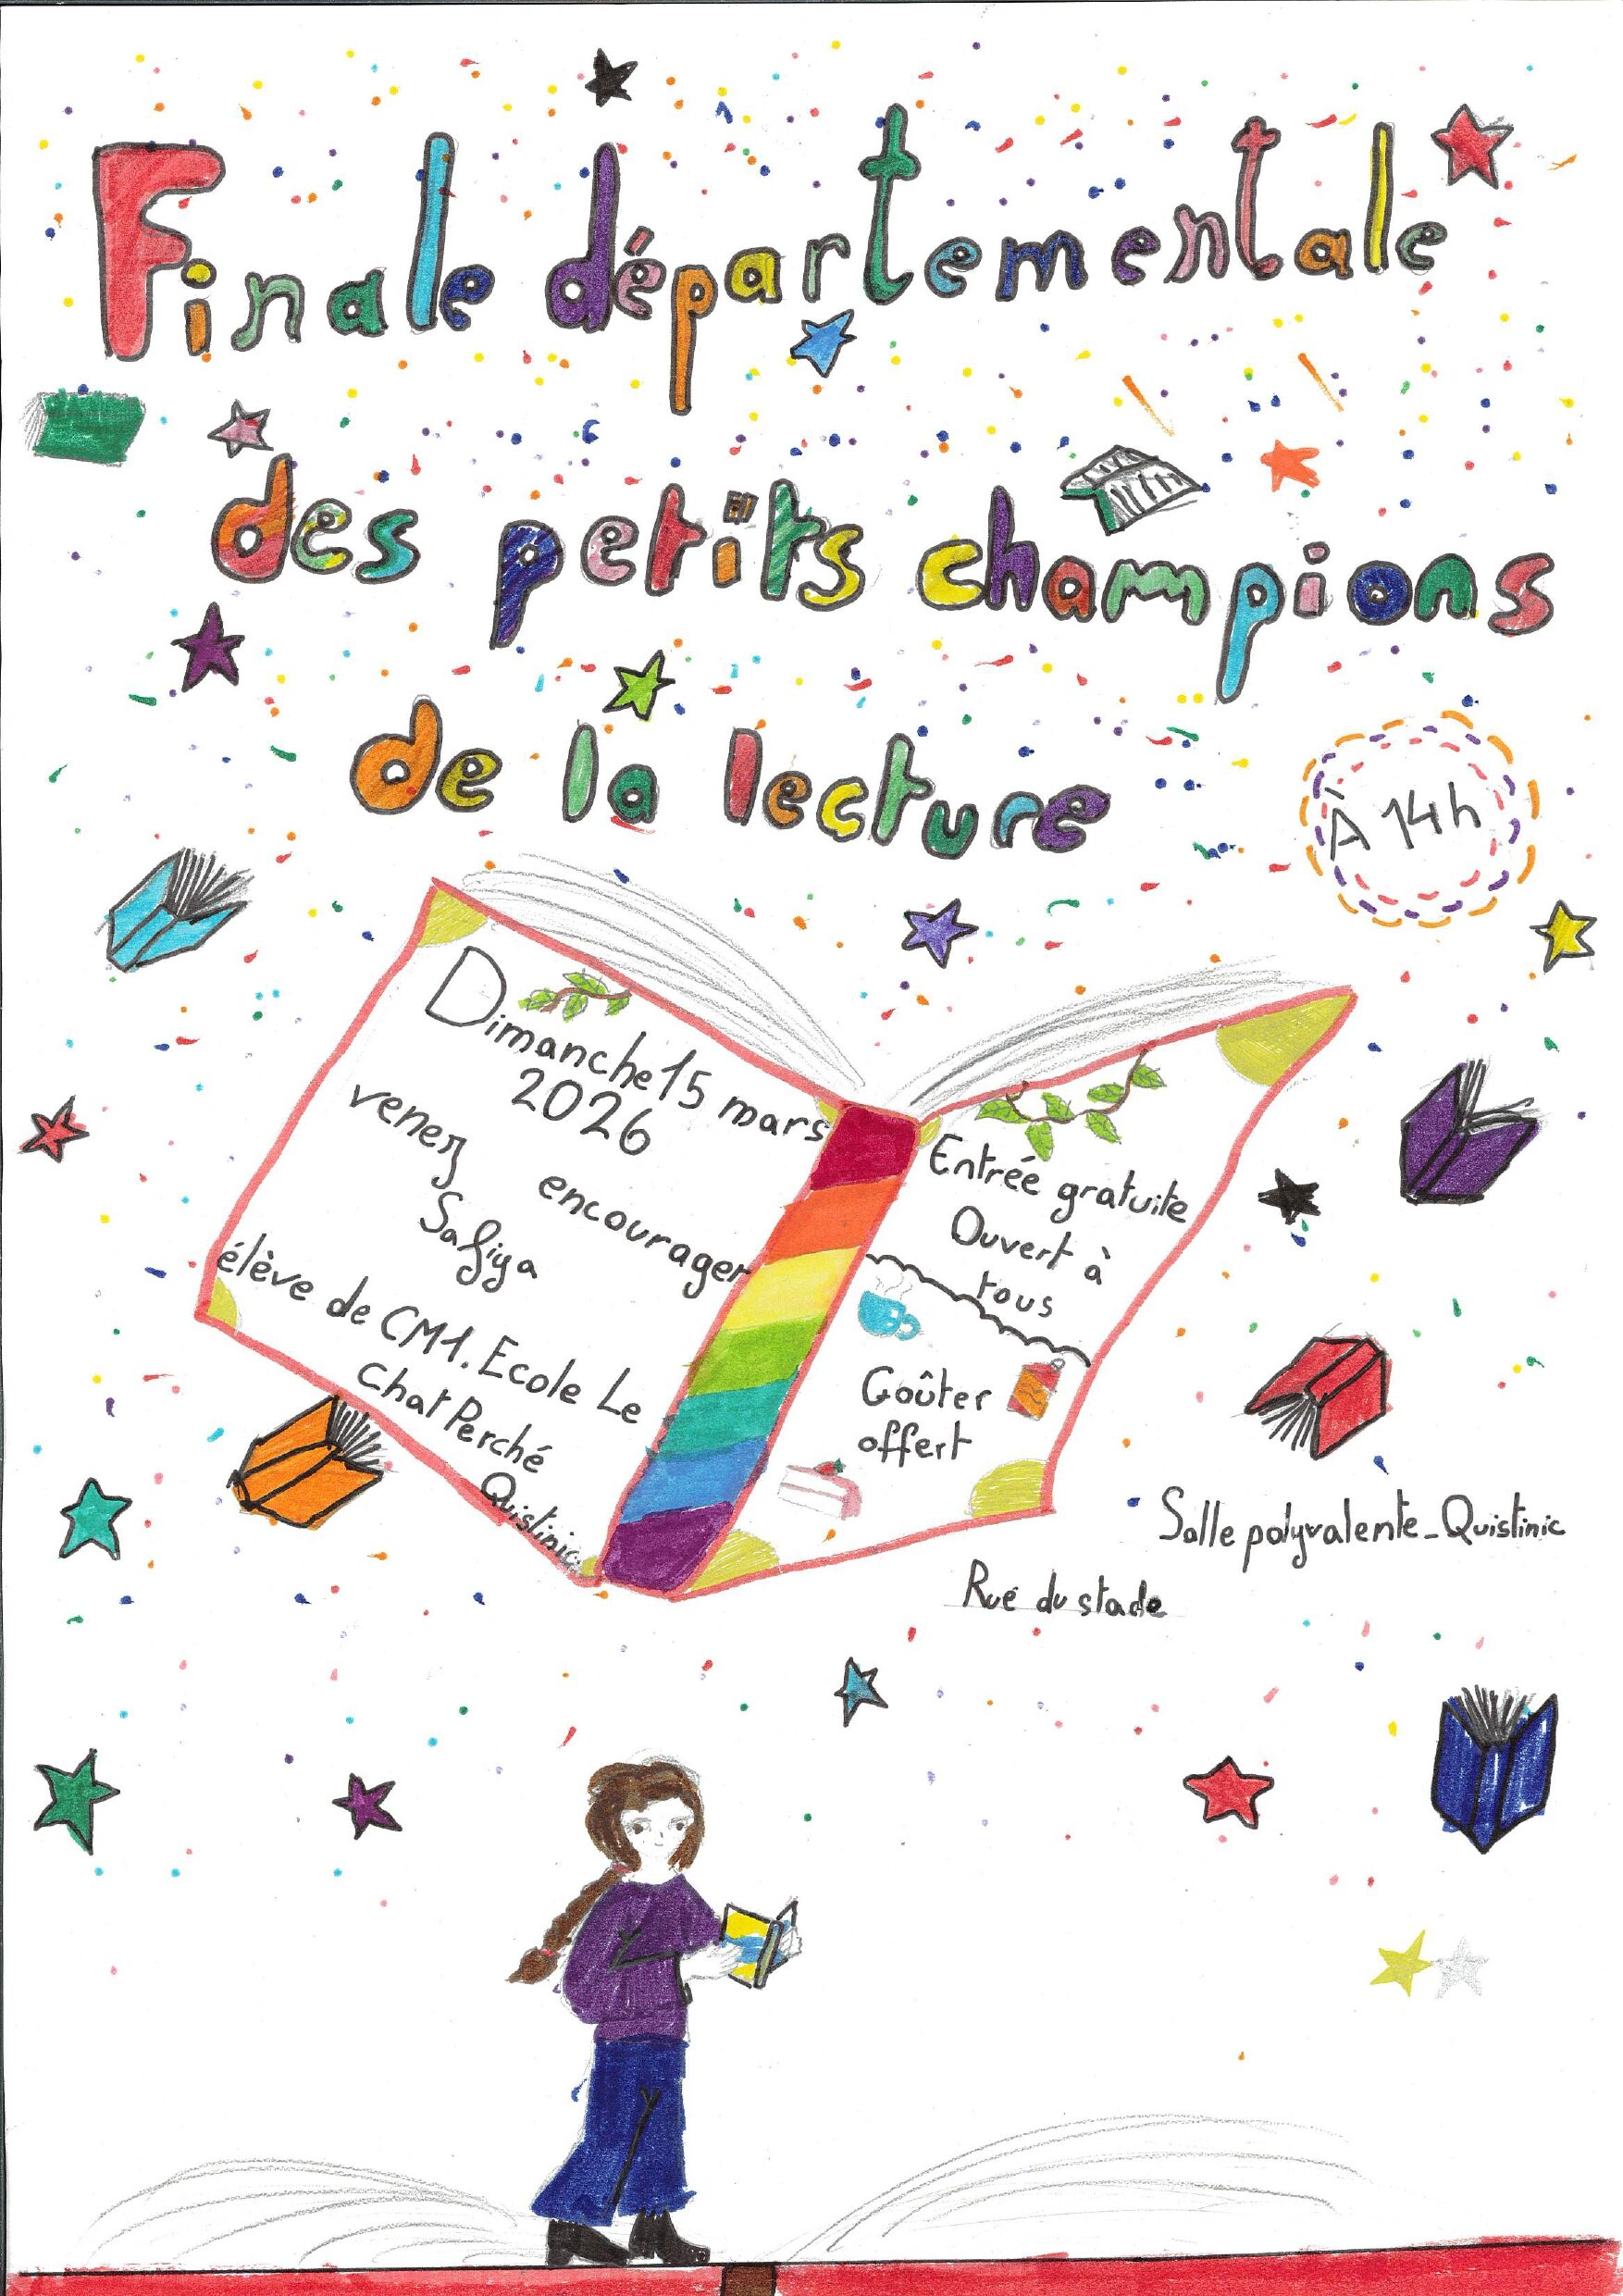 Finale départementale
des petits champions
de la lecture
À 14h
Dimanche 15 mars
2026
venez encourager
Safiya
élève de CM1. Ecole Le
Chat Perché
Quistinic
Entrée gratuite
Ouvert à
tous
Goûter
offert
Salle polyvalente_Quistinic
Rue du stade